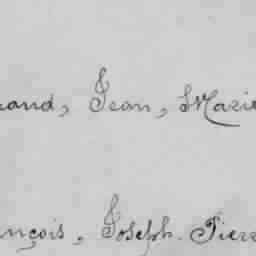 and, Jean, Marie
nçois, Joseph. Pierr